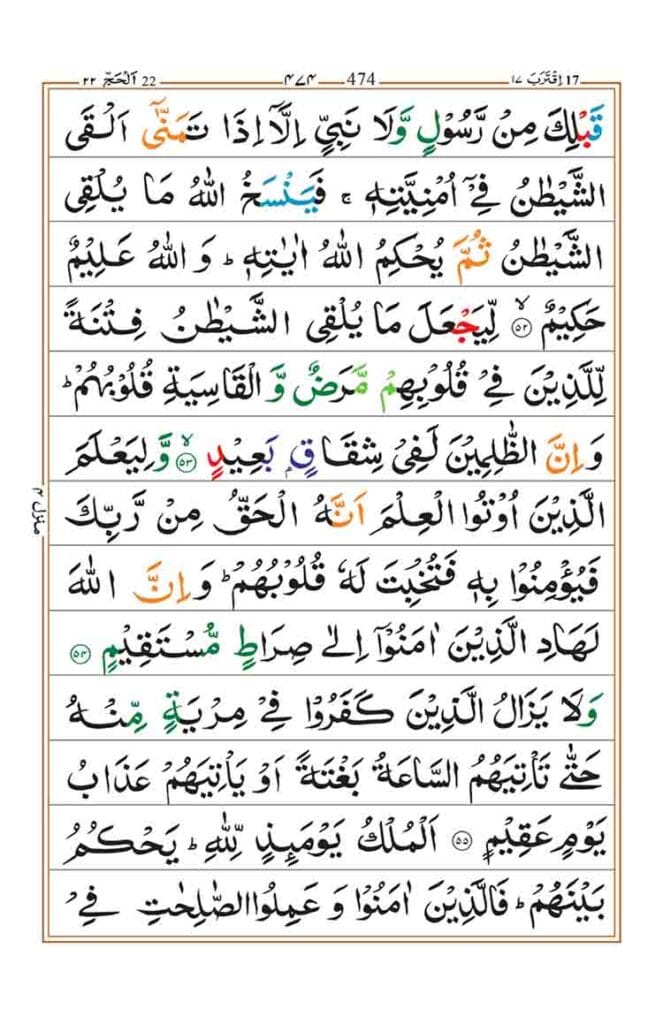 اِقْتَرَبَ ١٧ 17 474 ٤٧٤ 22 اَلْحَجّ ٢٢
قَبْلِكَ مِنْ رَّسُوْلٍ وَّلَا نَبِيٍّ اِلَّاۤ اِذَا تَمَنّٰۤى اَلْقَى
الشَّيْطٰنُ فِيْۤ اُمْنِيَّتِهٖ ۚ فَيَنْسَخُ اللّٰهُ مَا يُلْقِى
الشَّيْطٰنُ ثُمَّ يُحْكِمُ اللّٰهُ اٰيٰتِهٖ ؕ وَ اللّٰهُ عَلِيْمٌ
حَكِيْمٌ ۙ﴿٥٢﴾ لِّيَجْعَلَ مَا يُلْقِى الشَّيْطٰنُ فِتْنَةً
لِّلَّذِيْنَ فِيْ قُلُوْبِهِمْ مَّرَضٌ وَّ الْقَاسِيَةِ قُلُوْبُهُمْ ؕ
وَ اِنَّ الظّٰلِمِيْنَ لَفِيْ شِقَاقٍۭ بَعِيْدٍ ۙ﴿٥٣﴾ وَّلِيَعْلَمَ
الَّذِيْنَ اُوْتُوا الْعِلْمَ اَنَّهُ الْحَقُّ مِنْ رَّبِّكَ
فَيُؤْمِنُوْا بِهٖ فَتُخْبِتَ لَهٗ قُلُوْبُهُمْ ؕ وَ اِنَّ اللّٰهَ
لَهَادِ الَّذِيْنَ اٰمَنُوْۤا اِلٰى صِرَاطٍ مُّسْتَقِيْمٍ ﴿٥٤﴾
وَلَا يَزَالُ الَّذِيْنَ كَفَرُوْا فِيْ مِرْيَةٍ مِّنْهُ
حَتّٰى تَاْتِيَهُمُ السَّاعَةُ بَغْتَةً اَوْ يَاْتِيَهُمْ عَذَابُ
يَوْمٍ عَقِيْمٍ ﴿٥٥﴾ اَلْمُلْكُ يَوْمَىِٕذٍ لِّلّٰهِ ؕ يَحْكُمُ
بَيْنَهُمْ ؕ فَالَّذِيْنَ اٰمَنُوْا وَ عَمِلُوا الصّٰلِحٰتِ فِيْ
منزل ٤